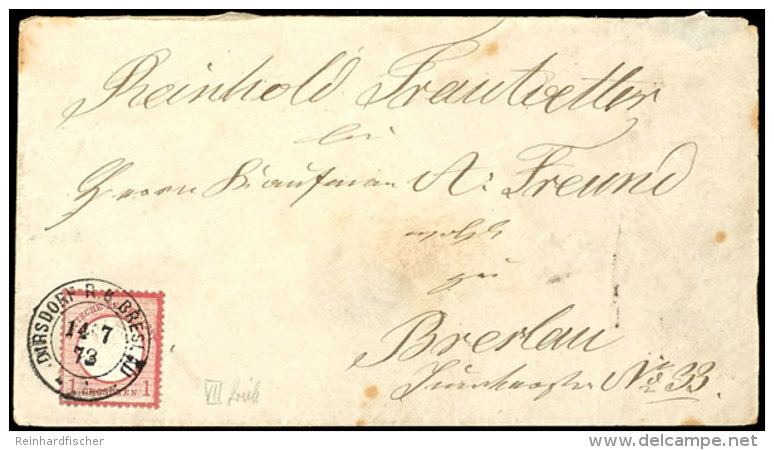 Reinhold Trautvetter
bei
Herrn Kaufman A. Freund
wohlh
zu
Breslau
No 33.
DIRSDORF R.B. BRESLAU
14 7
73
1 GROSCHEN 1
VII
Reinhardfischer
delcampe.net